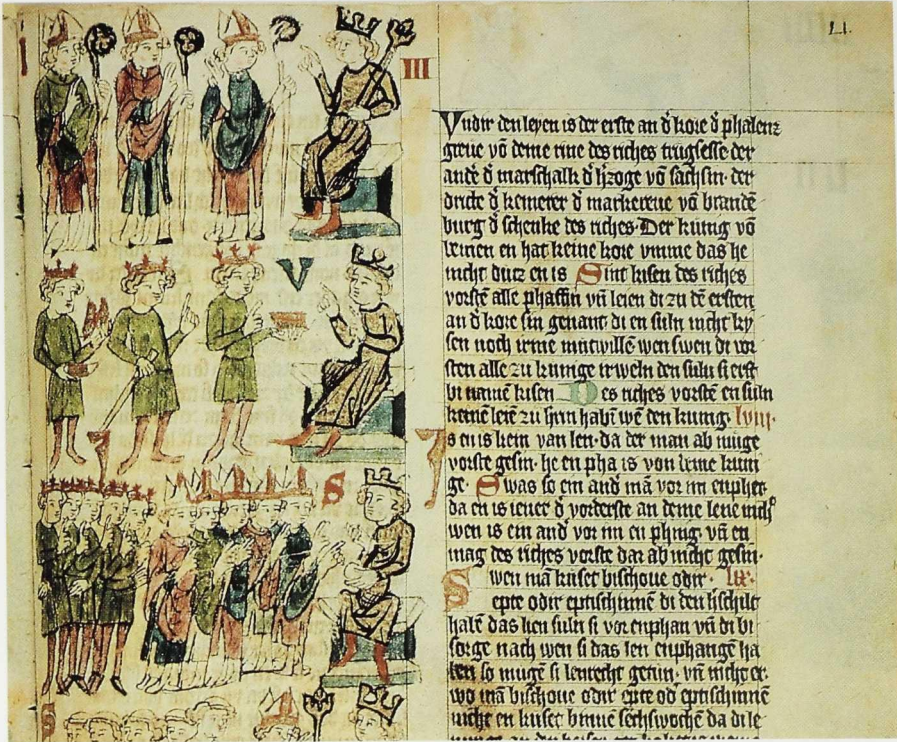 LI.
III
Vndir den leyen is der erste an d̕ kore d̕ phalenz
greue vō deme rine des riches trugsesse der
and̕e d̕ marschalk d̕ h̕zoge vō sachsin· der
dritte d̕ kemerer d̕ markereue vō brandē
burg d̕ schenke des riches· Der kunig vō
bemen en hat keine kore vmme das he
nicht dutz en is Sint kisen des riches
vorstē alle phaffin vn̄ leien di zu dē ersten
an d̕ kore sin genant· di en suln nicht ky
sen noch irme mutwillē wen swen di vor
sten alle zu kunige irweln den suln si erst
bi namē kisen Des riches vorstē en suln
keinē leiē zu h̕rin habē wē den kunig· lviii·
Is en is kein van len· da der man ab muge
vorste gesin· he en pha is von deme kuni
ge· Swas so ein and̕ mā vor im enphet·
da en is iener d̕ vorderste an deme lene nicht
wen is ein and̕ vor im en phing· vn̄ en
mag des riches vorste dar ab nicht gesin·
Swen mā kuset bischoue odir· lix·
epte odir eptischinnē di den h̕schilt
habē das lien suln si vor enphan vn̄ di bi
sorge nach wen si das len enphangē ha
ben so mugē si lenrecht getun· vn̄ nicht er·
wo mā bischoue odir epte od̕ eptischinnē
nicht en kuset binnē sechswochē da di le
V
S
S